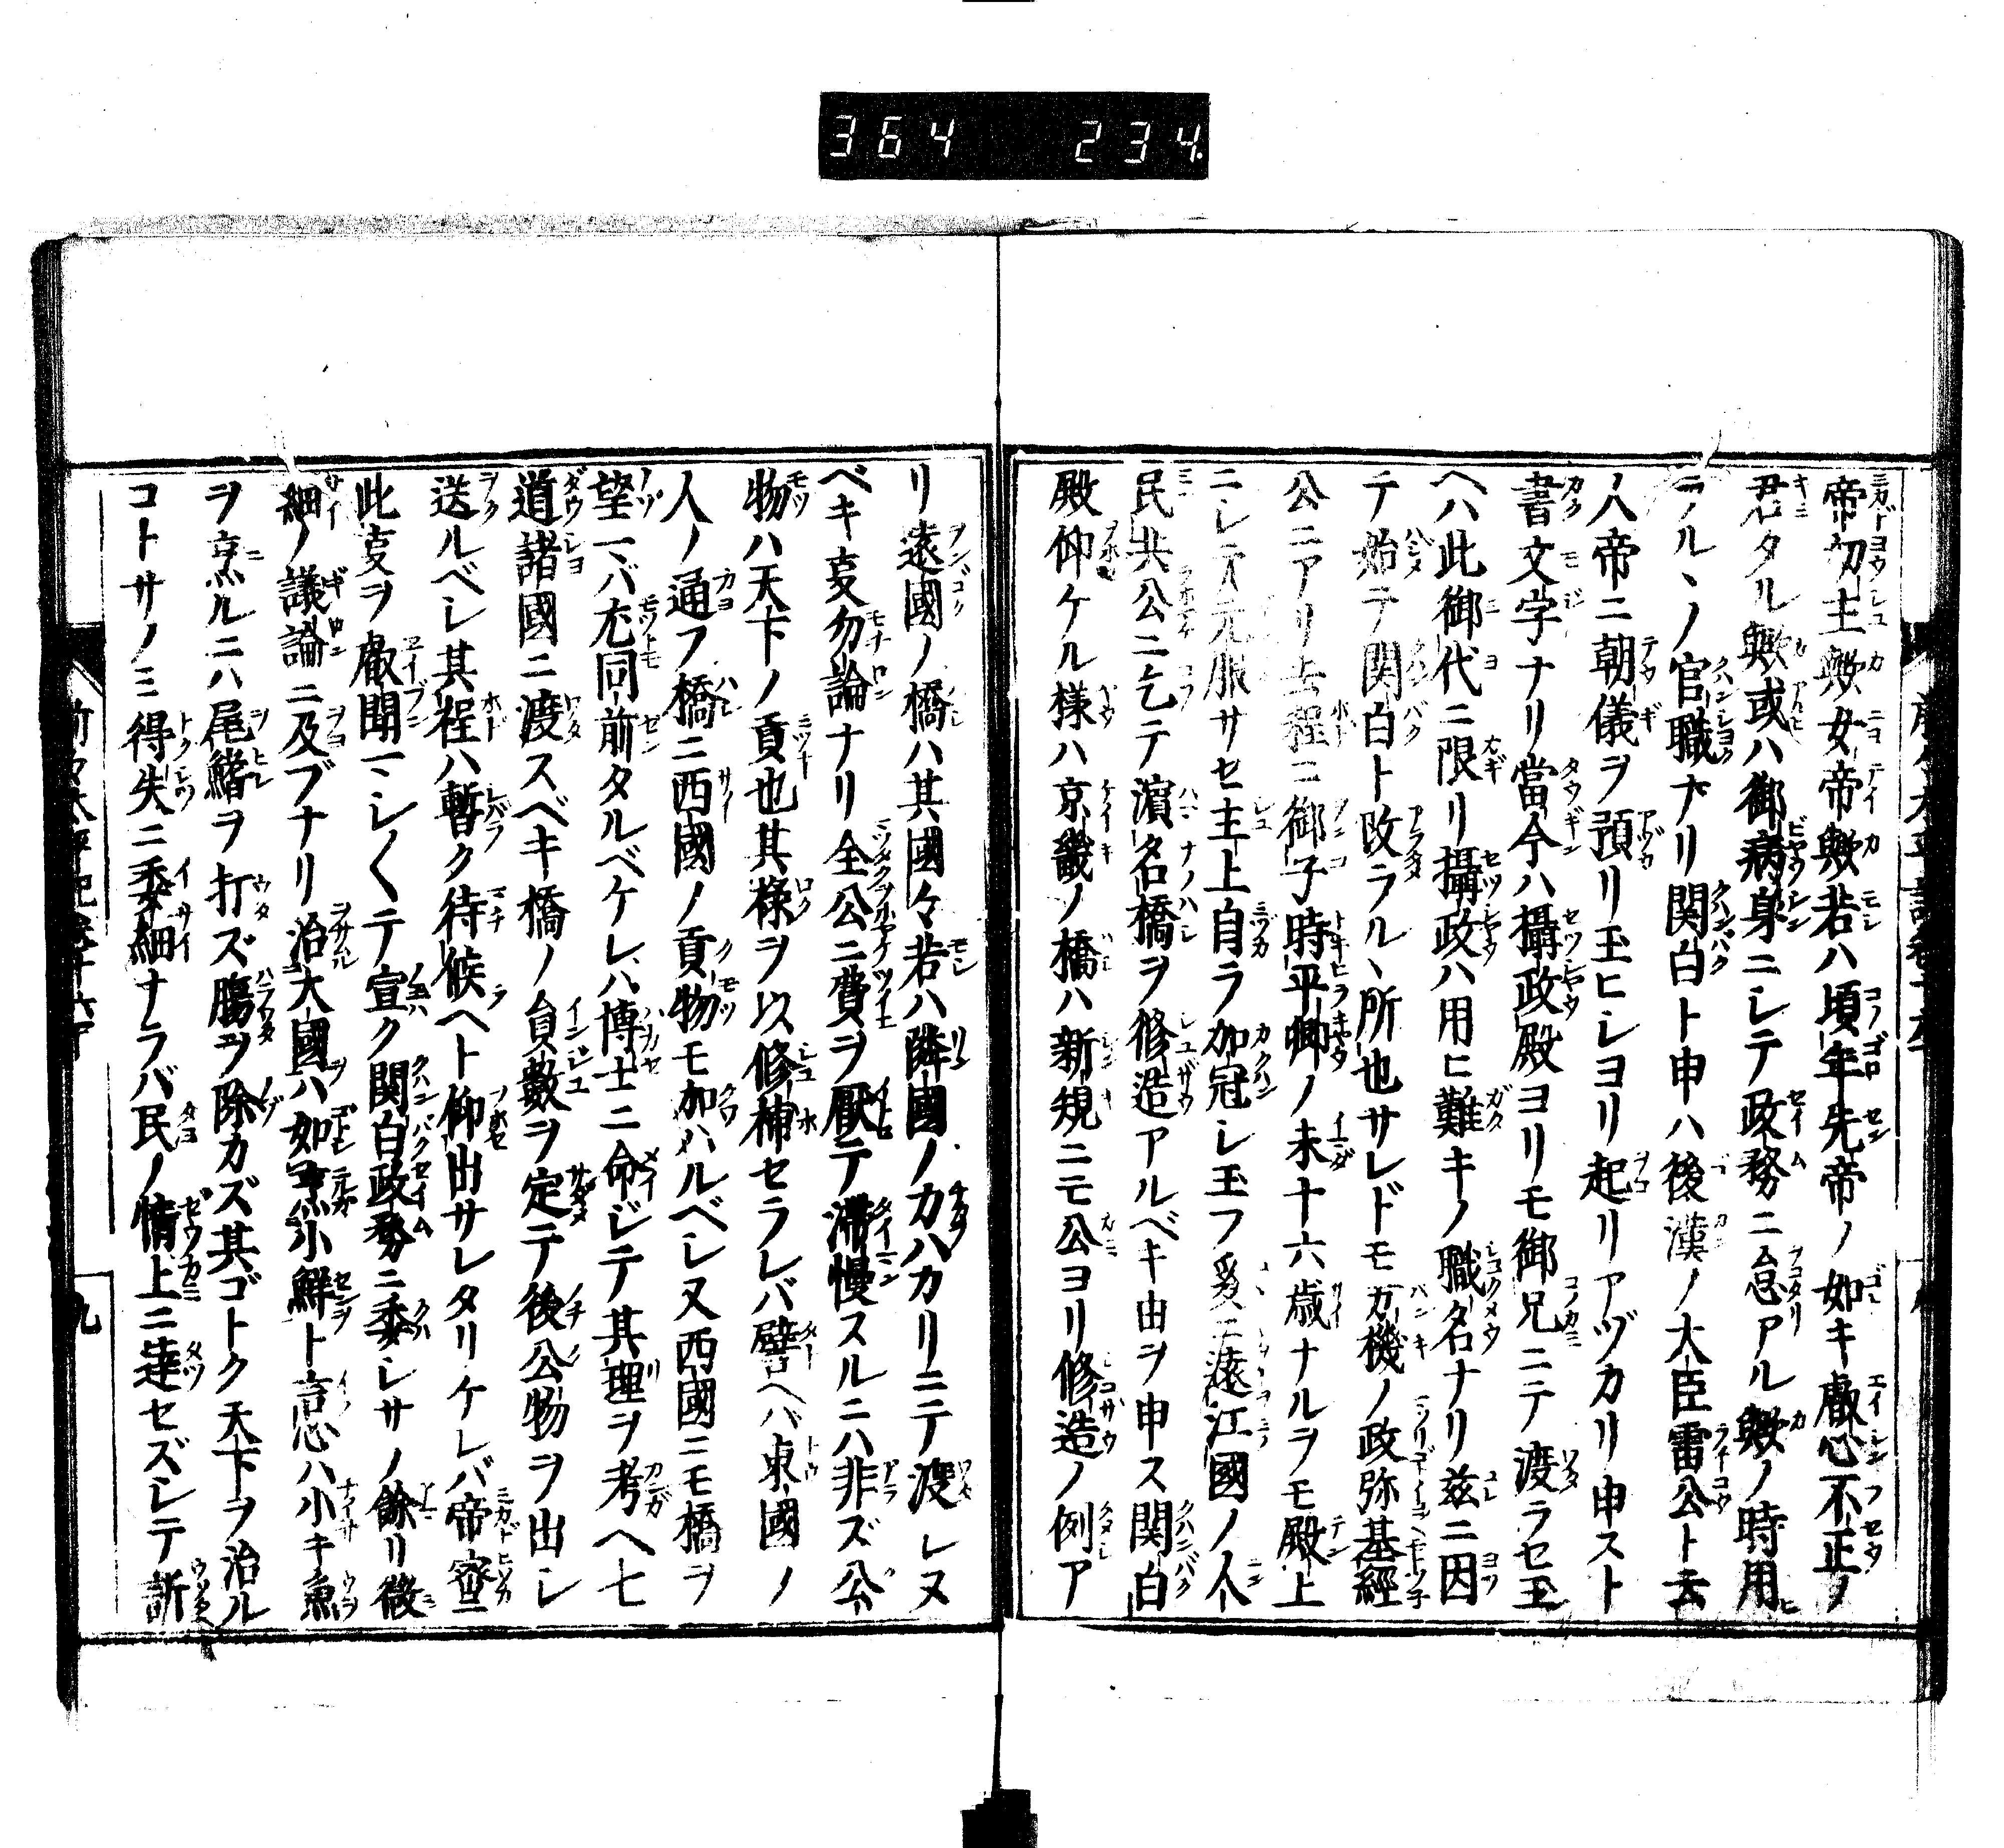 364 234
帝幼主歟女帝歟若ハ頃年先帝ノ如キ叡心不正ノ
君タル歟或ハ御病身ニシテ政務ニ怠アル歟ノ時用
ラルヽノ官職ナリ関白ト申ハ後漢ノ大臣雷公ト云
人帝ニ朝儀ヲ預リ玉ヒシヨリ起リアヅカリ申スト
書文字ナリ當今ハ攝政殿ヨリモ御兄ニテ渡ラセ玉
ヘハ此御代ニ限リ攝政ハ用ヒ難キノ職名ナリ茲ニ因
テ始テ関白ト改ラルヽ所也サレドモ万機ノ政弥基經
公ニアリ去程ニ御子時平卿ノ未十六歳ナルヲモ殿上
ニシテ元服サセ主上自ラ加冠シ玉フ爰ニ遠江國ノ人
民共公ニ乞テ濵名橋ヲ修造アルベキ由ヲ申ス関白
殿仰ケル様ハ京畿ノ橋ハ新規ニモ公ヨリ修造ノ例ア
リ遠國ノ橋ハ其國々若ハ隣國ノカハカリニテ渡シヌ
ベキ叓勿論ナリ全公ニ費ヲ厭テ滯慢スルニハ非ズ公
物ハ天下ノ貢也其祿ヲ以修補セラレバ譬ヘバ東國ノ
人ノ通フ橋ニ西國ノ貢物モ加ハルベシ又西國ニモ橋ヲ
望マバ尤同前タルベケレハ博士ニ命ジテ其理ヲ考ヘ七
道諸國ニ渡スベキ橋ノ員數ヲ定テ後公物ヲ出シ
送ルベシ其程ハ暫ク待候ヘト仰出サレタリケレバ帝密ニ
此叓ヲ叡聞マシ〱テ宣ク関白政務ニ委シサノ餘リ微
細ノ議論ニ及ブナリ治大國ハ如烹小鮮ト言心ハ小キ魚
ヲ烹ルニハ尾鰭ヲ打ズ膓ヲ除カズ其ゴトク天下ヲ治ル
コトサノミ得失ニ委細ナラバ民ノ情上ニ達セズシテ訴
前々太平記卷十六
九